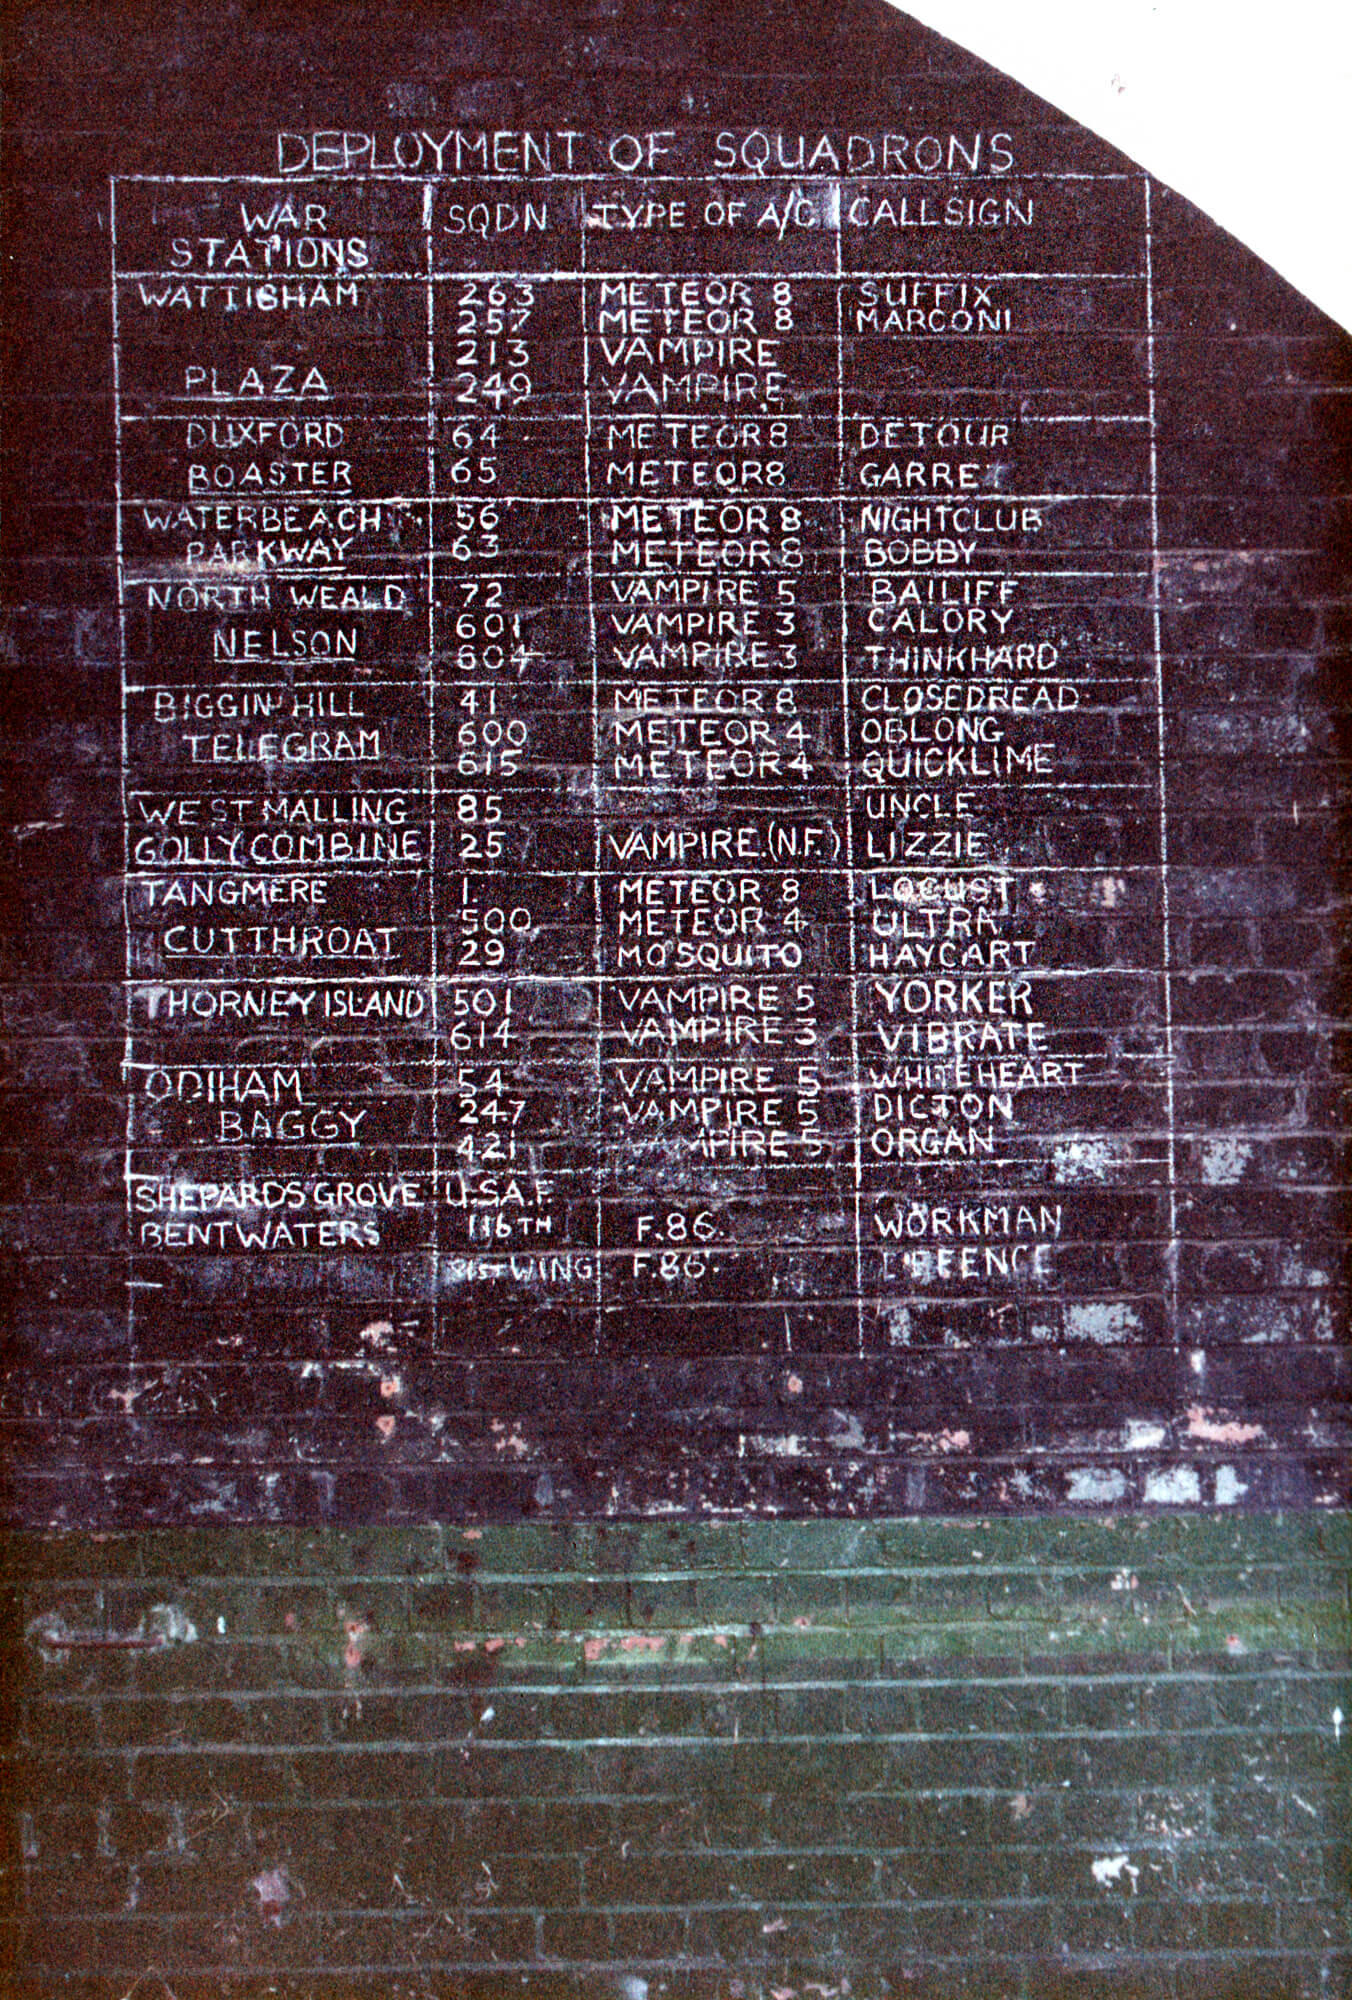 DEPLOYMENT OF SQUADRONS
WAR STATIONS SQDN TYPE OF A/C CALLSIGN
WATTISHAM 263 METEOR 8 SUFFIX
257 METEOR 8 MARCONI
213 VAMPIRE
PLAZA 249 VAMPIRE
DUXFORD 64 METEOR 8 DETOUR
BOASTER 65 METEOR 8 GARRET
WATERBEACH 56 METEOR 8 NIGHTCLUB
PARKWAY 63 METEOR 8 BOBBY
NORTH WEALD 72 VAMPIRE 5 BAILIFF
601 VAMPIRE 3 CALORY
NELSON 604 VAMPIRE 3 THINKHARD
BIGGIN HILL 41 METEOR 8 CLOSEDREAD
TELLEGRAM 600 METEOR 4 OBLONG
615 METEOR 4 QUICKLIME
WEST MALLING 85 UNCLE
GOLLY COMBINE 25 VAMPIRE.(N.F.) LIZZIE
TANGMERE 1. METEOR 8 LOCUST
500 METEOR 4 ULTRA
CUTTHROAT 29 MOSQUITO HAYCART
THORNEY ISLAND 501 VAMPIRE 5 YORKER
614 VAMPIRE 3 VIBRATE
ODIHAM 54 VAMPIRE 5 WHITEHEART
BAGGY 247 VAMPIRE 5 DICTON
421 VAMPIRE 5 ORGAN
SHEPARDS GROVE U.S.A.F.
BENTWATERS 116TH F.86. WORKMAN
81ST WING F.86. DEFENCE